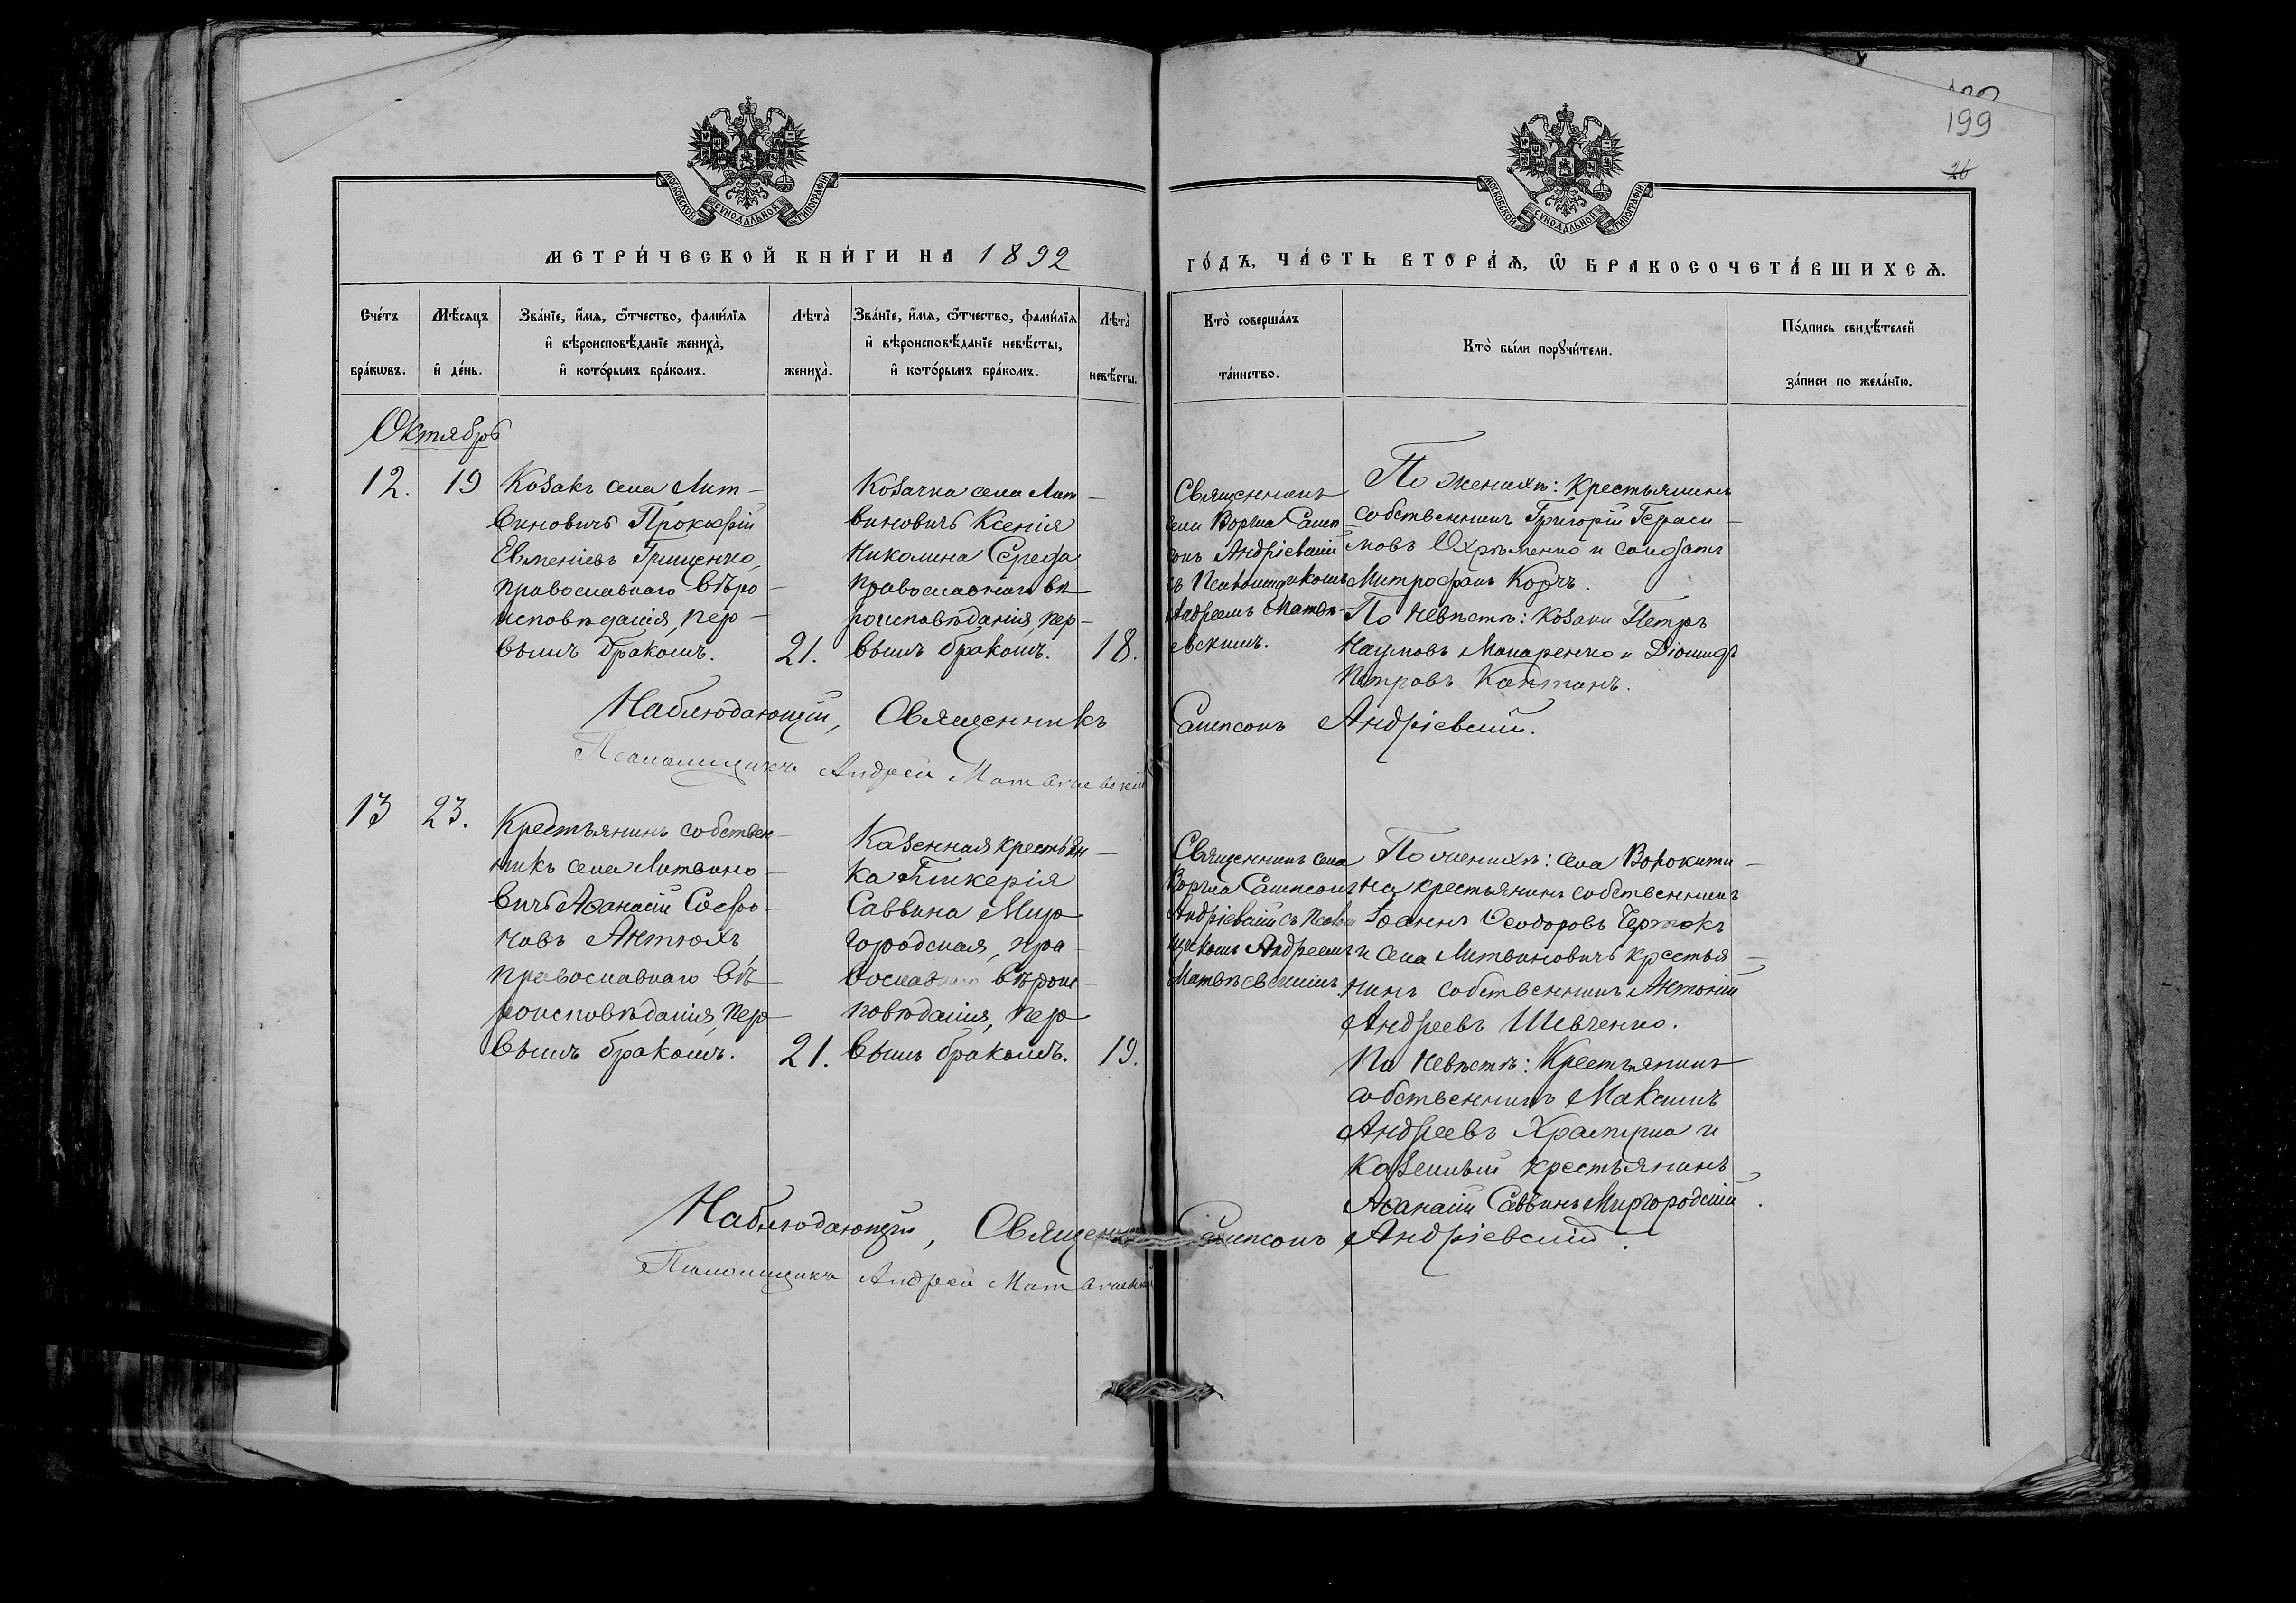 199
26
МОСКОВСКОЙ СУНОДАЛЬНОЙ ТИПОГРАФІИ
МОСКОВСКОЙ СУНОДАЛЬНОЙ ТИПОГРАФІИ
МЕТРИ́ЧЕСКОЙ КНИ́ГИ НА 1892
ГО́ДЪ, ЧА́СТЬ ВТОРА́Ѧ, Ѽ БРАКОСОЧЕТА́ВШИХСѦ.
Сче́тъ бра́кѡвъ.
Мѣ́сяцъ и҆ де́нь.
Зва́нїе, и҆́мя, ѻ҆́тчество, фами́лїя
и҆ вѣроисповѣ́данїе жениха̀,
и҆ кото́рымъ бра́комъ.
Лѣта̀ жениха̀.
Зва́нїе, и҆́мя, ѻ҆́тчество, фами́лїя
и҆ вѣроисповѣ́данїе невѣ́сты,
и҆ кото́рымъ бра́комъ.
Лѣта̀ невѣ́сты.
Кто̀ соверша́лъ та́инство.
Кто̀ бы́ли порꙋчи́тели.
По́дпись свидѣ́телей
за́писи по жела́нїю.
Октябрь
12. 19
Козакъ села Лит-
виновичъ Прокофій
Евменіевъ Грищенко,
православнаго вѣро-
исповѣданія, пер-
вымъ бракомъ.
21.
Козачка села Лит-
виновичъ Ксенія
Николина Середа
православнаго вѣ-
роисповѣданія, пер-
вымъ бракомъ.
18.
Священникъ
села Воргла Самп-
сонъ Андріевскій
съ Псаломщикомъ
Андреемъ Матвѣ-
евскимъ.
По женихѣ: Крестьянинъ
собственникъ Григорій Гераси-
мовъ Охрѣменко и солдатъ
Митрофанъ Корчъ.
По невѣстѣ: Козаки Петръ
Наумовъ Макаренко и Діомидъ
Петровъ Каптанъ.
Наблюдающій, Священникъ Сампсонъ Андріевскій.
Псаломщикъ Андрей Матвѣевскій
13 23.
Крестьянинъ собствен-
никъ села Литвино-
вичъ Аѳанасій Софро-
новъ Антюхъ
православнаго вѣ-
роисповѣданія, пер-
вымъ бракомъ.
21.
Казенная крестьян-
ка Гликерія
Саввина Мир-
городская, пра-
вославнаго вѣроис-
повѣданія, пер-
вымъ бракомъ.
19.
Священникъ села
Воргла Сампсонъ
Андріевскій съ Псалом-
щикомъ Андреемъ
Матвѣевскимъ.
По женихѣ: села Ворокити-
на крестьянинъ собственникъ
Іоаннъ Ѳеодоровъ Чертокъ
и села Литвиновичъ крестья-
нинъ собственникъ Антоній
Андреевъ Шевченко.
По невѣстѣ: Крестьянинъ
собственникъ Максимъ
Андреевъ и
казенный крестьянинъ
Аѳанасій Саввинъ Миргородскій.
Наблюдающій, Священникъ Сампсонъ Андріевскій.
Псаломщикъ Андрей Матвѣевскій